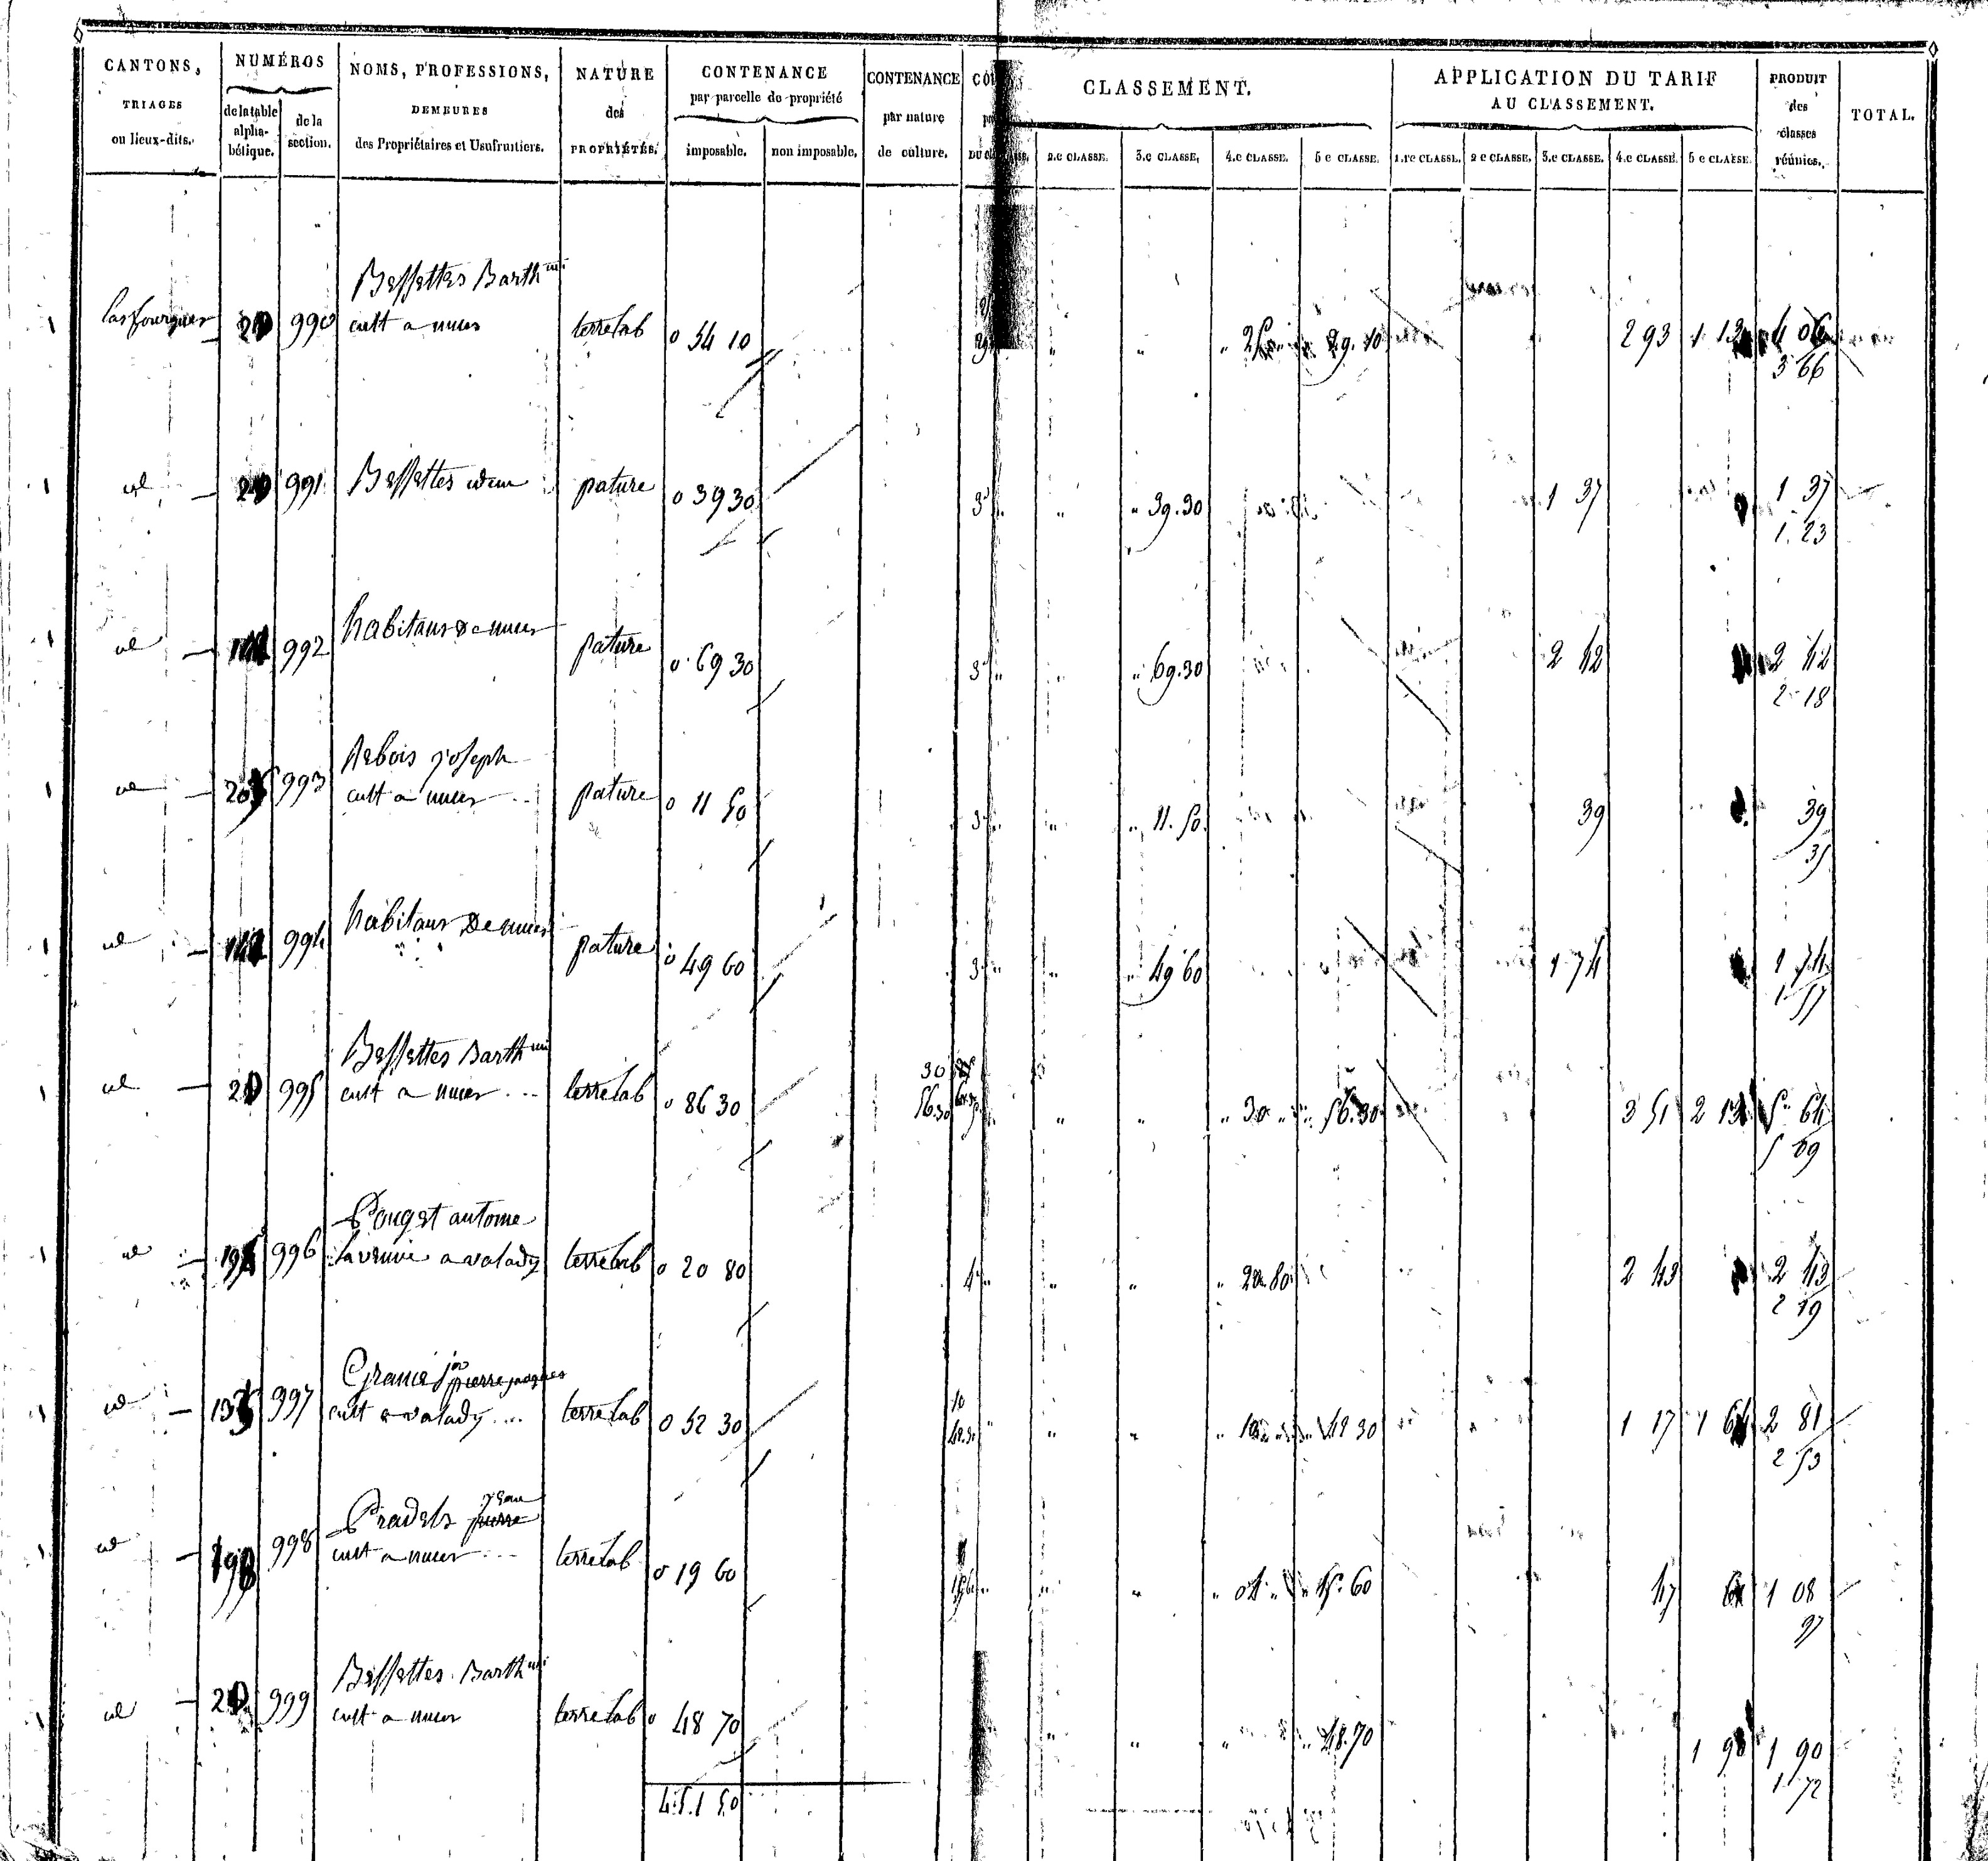 CANTONS, TRIAGES ou lieux-dits.
NUMÉROS
de la table alpha-bétique.
de la section.
NOMS, PROFESSIONS, DEMEURES des Propriétaires et Usufruitiers.
NATURE des PROPRIÉTÉS.
CONTENANCE par parcelle de propriété
imposable.
non imposable.
CONTENANCE par nature de culture.
CLASSEMENT.
2.e CLASSE. 3.e CLASSE. 4.e CLASSE. 5 e CLASSE.
APPLICATION DU TARIF AU CLASSEMENT.
1.re CLASSE. 2 e CLASSE. 3.e CLASSE. 4.e CLASSE. 5 e CLASSE.
PRODUIT des classes réunies.
TOTAL.
Bessettes Barth mi
las fourques 20 990 cult a nuces terre lab 0 54 10 29. 10 2 93 1 13 4 06
3 66
id 20 991 Bessettes idem pature 0 39 30 3e " " 39.30 1 37 1 37
1. 23
habitans de nuces
id 992 pature 0 69 30 3e " " 69.30 2 42 2 42
2 18
joseph
id 993 cult a nuces pature 0 11 50 3e " " 11. 50 39 39
35
habitans de nuces
id 994 pature 0 49 60 3e " " 49 60 1 74 1 74
1 57
Bessettes Barth mi
30
id 20 995 cult a nuces terre lab 0 86 30 56.30 " " " 30 " " 56.30 3 51 2 13 5 64
5 09
Pouget antoine
id 996 la veuve a valady terre lab 0 20 80 4e " " " 20.80 2 43 2 43
2 19
jn pierre jacques
10
id 997 cult a valady terre lab 0 52 30 42.30 " " " 10 " " 42 30 1 17 1 64 2 81
2 53
jean
Pradels pierre
id 998 cult a nuces terre lab 0 19 60 " " " 04 " " 15. 60 47 61 1 08
97
Bessettes Barth mi
id 20 999 cult a nuces terre lab 0 48 70 " " " " 48.70 1 90 1 90
1 72
4.51 50